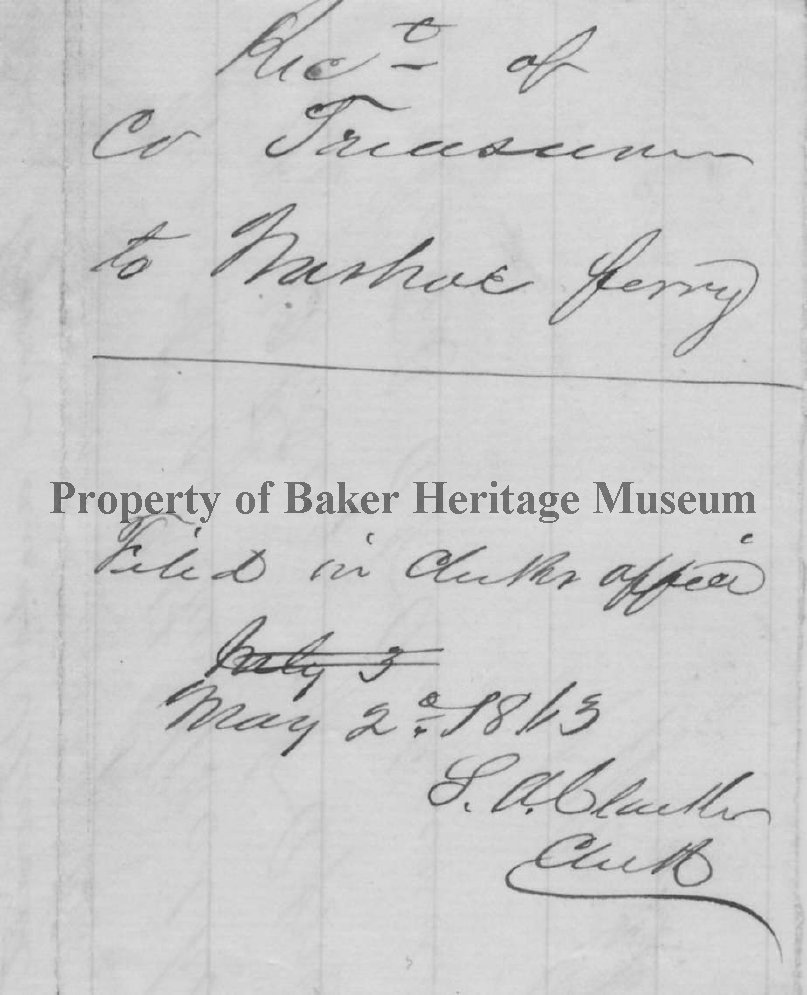 Rect of
Co Treasurer
to Washoe ferry
Property of Baker Heritage Museum
Filed in Clerks office
July 3
May 2d 1863
S. A. Clarke
Clerk